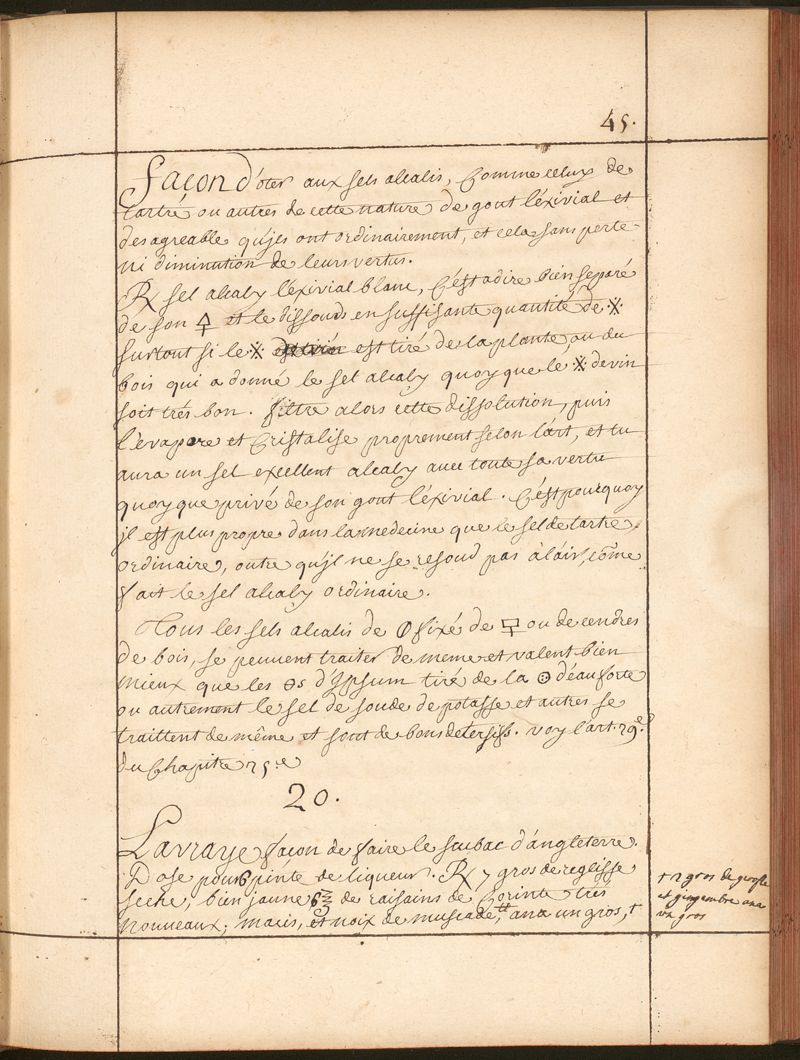 45.
Façon d'oter aux sels alcalis, Comme celuy de
tartre ou autres de cette nature de gout léxivial et
desagreable qu'jls ont ordinairement, et cela sans perte
ni diminution de leurs vertus.
℞ sel alcaly léxivial blanc, C'est adire bien separé
de son 🜍 et le dissouds en suffisante quantité de ※
surtout si le ※ est tiré de la plante, ou du
bois qui a donné le sel alcaly quoy que le ※ de vin
soit trés bon. filtre alors cette dissolution, puis
l'évapore et Cristalise proprement selon l'art, et tu
aura un sel excellent alcaly avec toute sa vertu
quoy que privé de son gout léxivial. C'est pourquoy
jl est plus propre dans la medecine que le sel de tartre
ordinaire, outre qu'jl ne se resoud pas à l'air, cõme
fait le sel alcaly ordinaire.
Tous les sels alcalis de 🜕 fixé de 🜿 ou de cendres
de bois, se peuvent traiter de meme et valent bien
mieux que les s d'Ypsum tiré de la d'eau forte
ou autrement le sel de soude de potasse et autres se
traittent de même et sont de bons detersifs. voy l'art. 29.e
du Chapitre 25.e
20.
La vraye façon de faire le scubac d'angleterre.
Dose pour 6 pinte de liqueur. ℞ 7 gros de reglisse
seche, bien jaune 6 ℥ de raisains de Corinte trés
nouveaux; macis, et noix de muscade, ana un gros, †
† 2 gros de gerofle
et gingembre ana
un gros